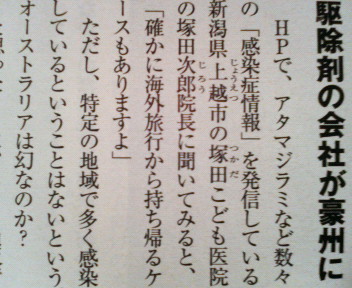 駆除剤の会社が豪州に
HPで、アタマジラミなど数々
の「感染症情報」を発信している
新潟県上越市の塚田こども医院
の塚田次郎院長に聞いてみると、
「確かに海外旅行から持ち帰るケ
ースもありますよ」
ただし、特定の地域で多く感染
しているということはないという
オーストラリアは幻なのか?